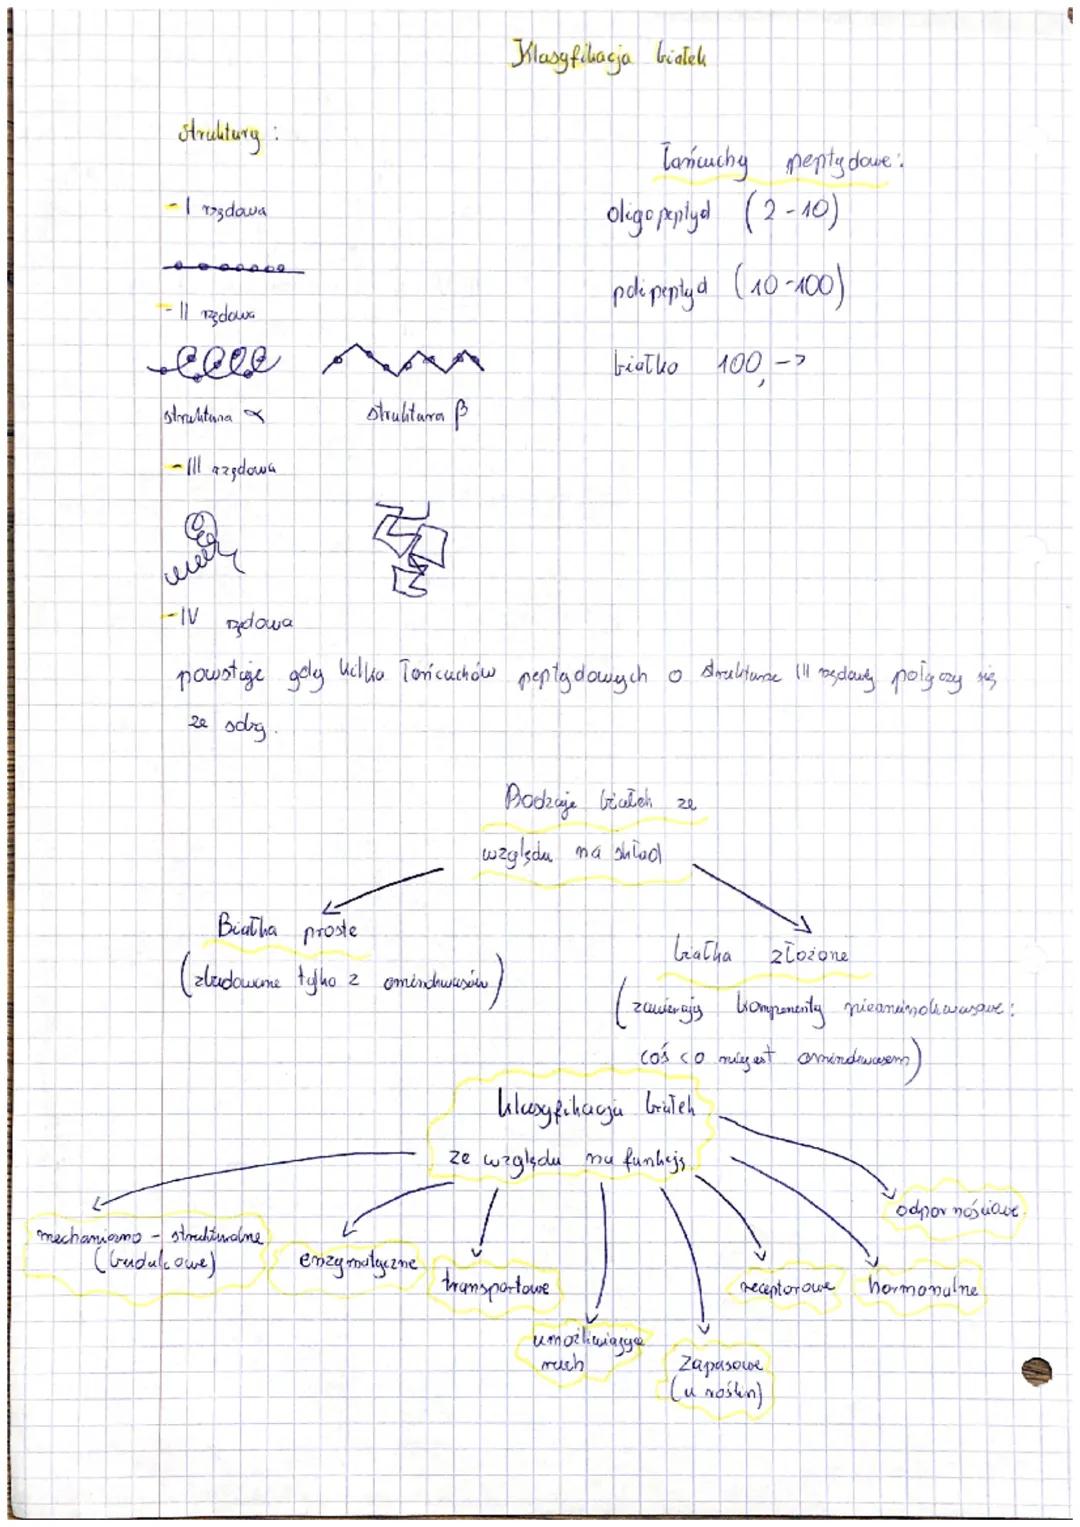 Klasyfikacja białek
struktury:
- I rzędowa
- II rzędowa
struktura α
struktura β
- III rzędowa
- IV rzędowa
powstaje gdy kilka łańcuchów peptydowych o strukturze III rzędowej połączy się
ze sobą.
Łańcuchy peptydowe:
oligopeptyd (2-10)
polipeptyd (10-100)
białko 100, ->
Rodzaje białek ze
względu na skład
Białka proste
(zbudowane tylko z aminokwasów)
białka złożone
(zawierają komponenty nieaminokwasowe:
coś co niejest aminokwasem)
klasyfikacja białek
ze względu na funkcję
mechaniczno - strukturalne
(budulcowe)
enzymatyczne
transportowe
umożliwiające
ruch
zapasowe
(u roślin)
receptorowe
hormonalne
odpornościowe